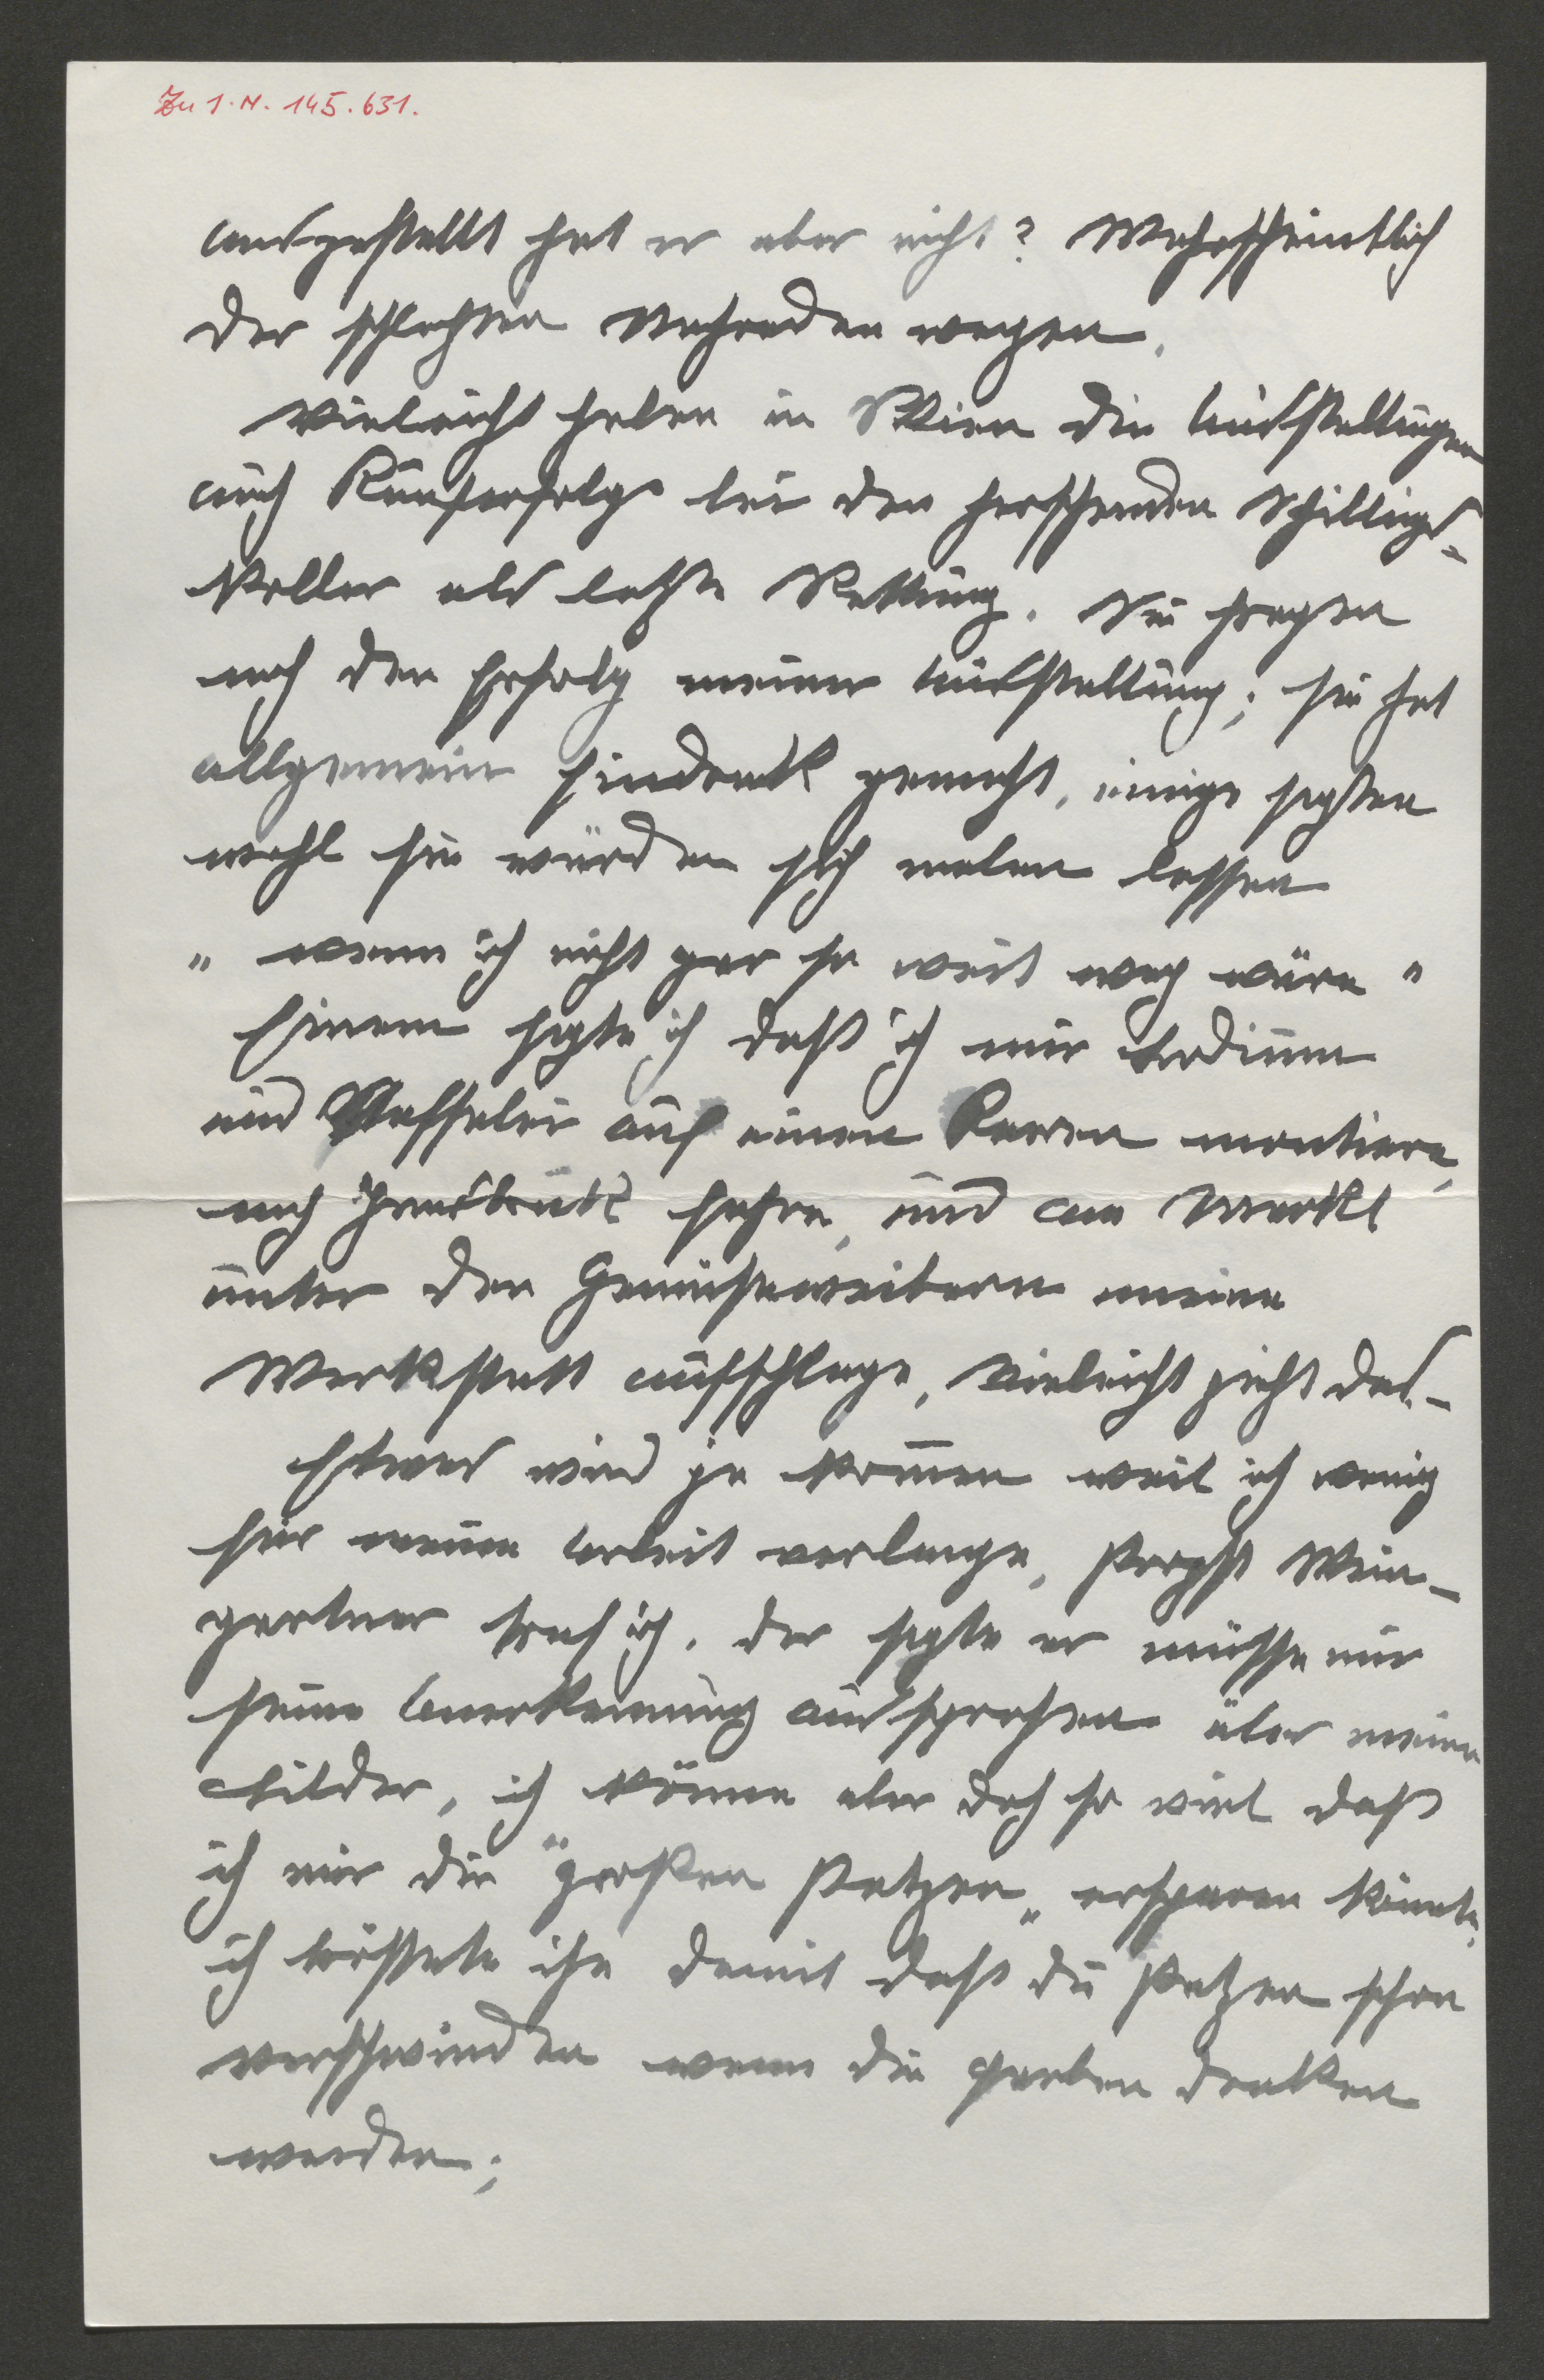 Zu I.N. 145.631.
ausgestellt hat er aber nicht? Wahrscheintlich
der schlechten wegen.
Vieleicht haben in Wien die Ausstellungen
auch Kauferfolge bei den herschenden Schillings-
koller als letzte Rettung. Sie fragen
nach den Erfolg meiner Ausstellung; sie hat
allgemein Eindruk gemacht, einige sagten
wohl sie würden sich malen lassen
" wenn ich nicht gar so weit weg wäre "
Einem sagte ich daß ich mir
und Staffelei auf einen Karren montiere,
nach Innsbruck fahre, und am Markt
unter den Gemüseweibern meine
Werkstatt aufschlage, vieleicht zieht das. –
Etwas wird ja kom̅en weil ich wenig
für meine Arbeit verlange, Probst Wein-
gartner traf ich, der sagte er müsse mir
seine Anerkennung aussprechen über meine
Bilder, ich könne aber doch so viel daß
ich mir die "großen Patzen„ ersparen könnte,
ich tröstete ihn damit daß die Patzen schon
verschwinden wenn die Farben troken
werden;